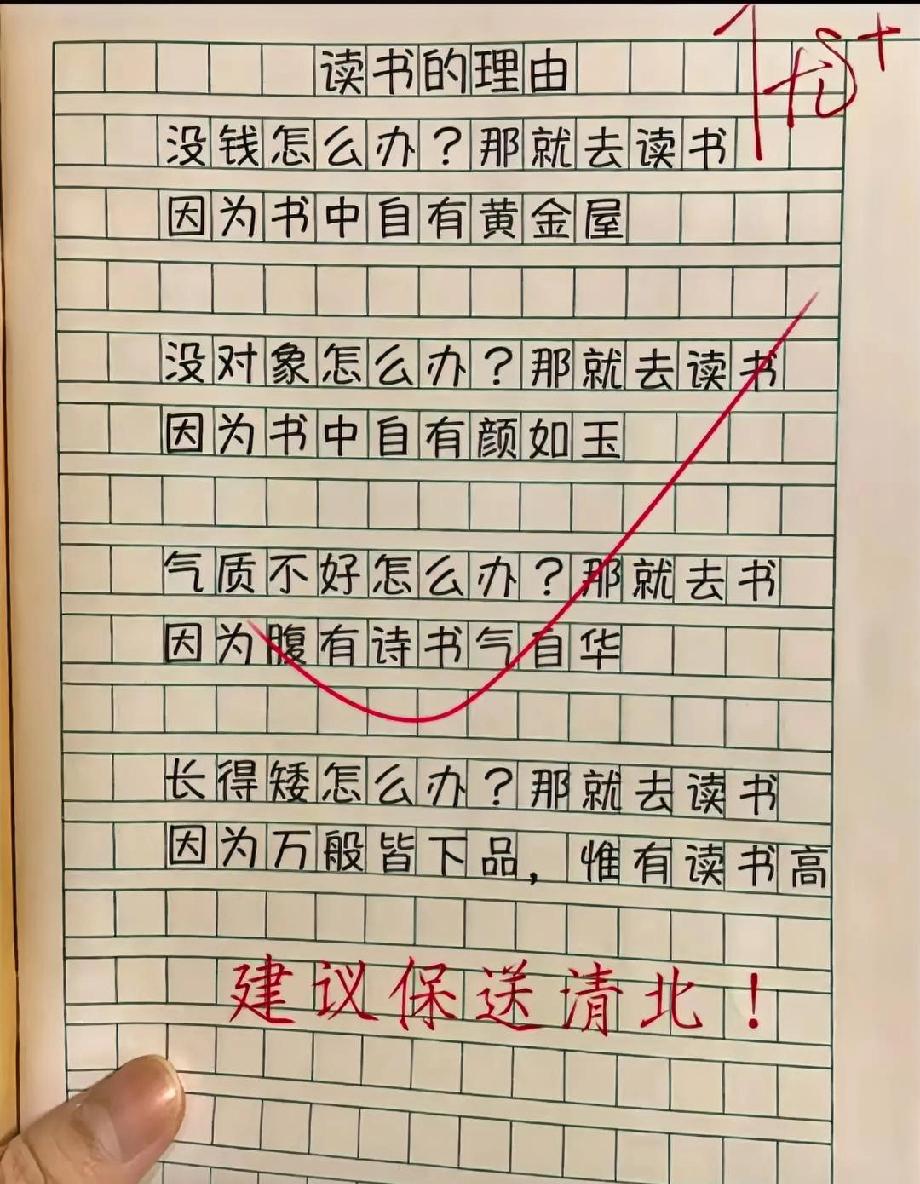 读书的理由
优+
没钱怎么办？那就去读书
因为书中自有黄金屋
没对象怎么办？那就去读书
因为书中自有颜如玉
气质不好怎么办？那就去书
因为腹有诗书气自华
长得矮怎么办？那就去读书
因为万般皆下品，惟有读书高
建议保送清北！